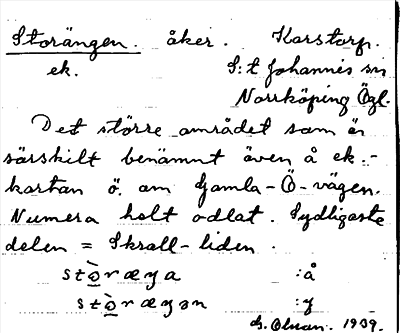 Storängen. åker. Karstorp.
ek. S:t Johannis sn
Norrköping Ögl.
Det större området som är
särskilt benämnt även å ek.-
kartan ö. om Gamla-Ö-vägen.
Numera helt odlat. Sydligaste
delen = Skrall-liden.
stòræŋa :å
stòræŋən :y
G. Olsson. 1939.